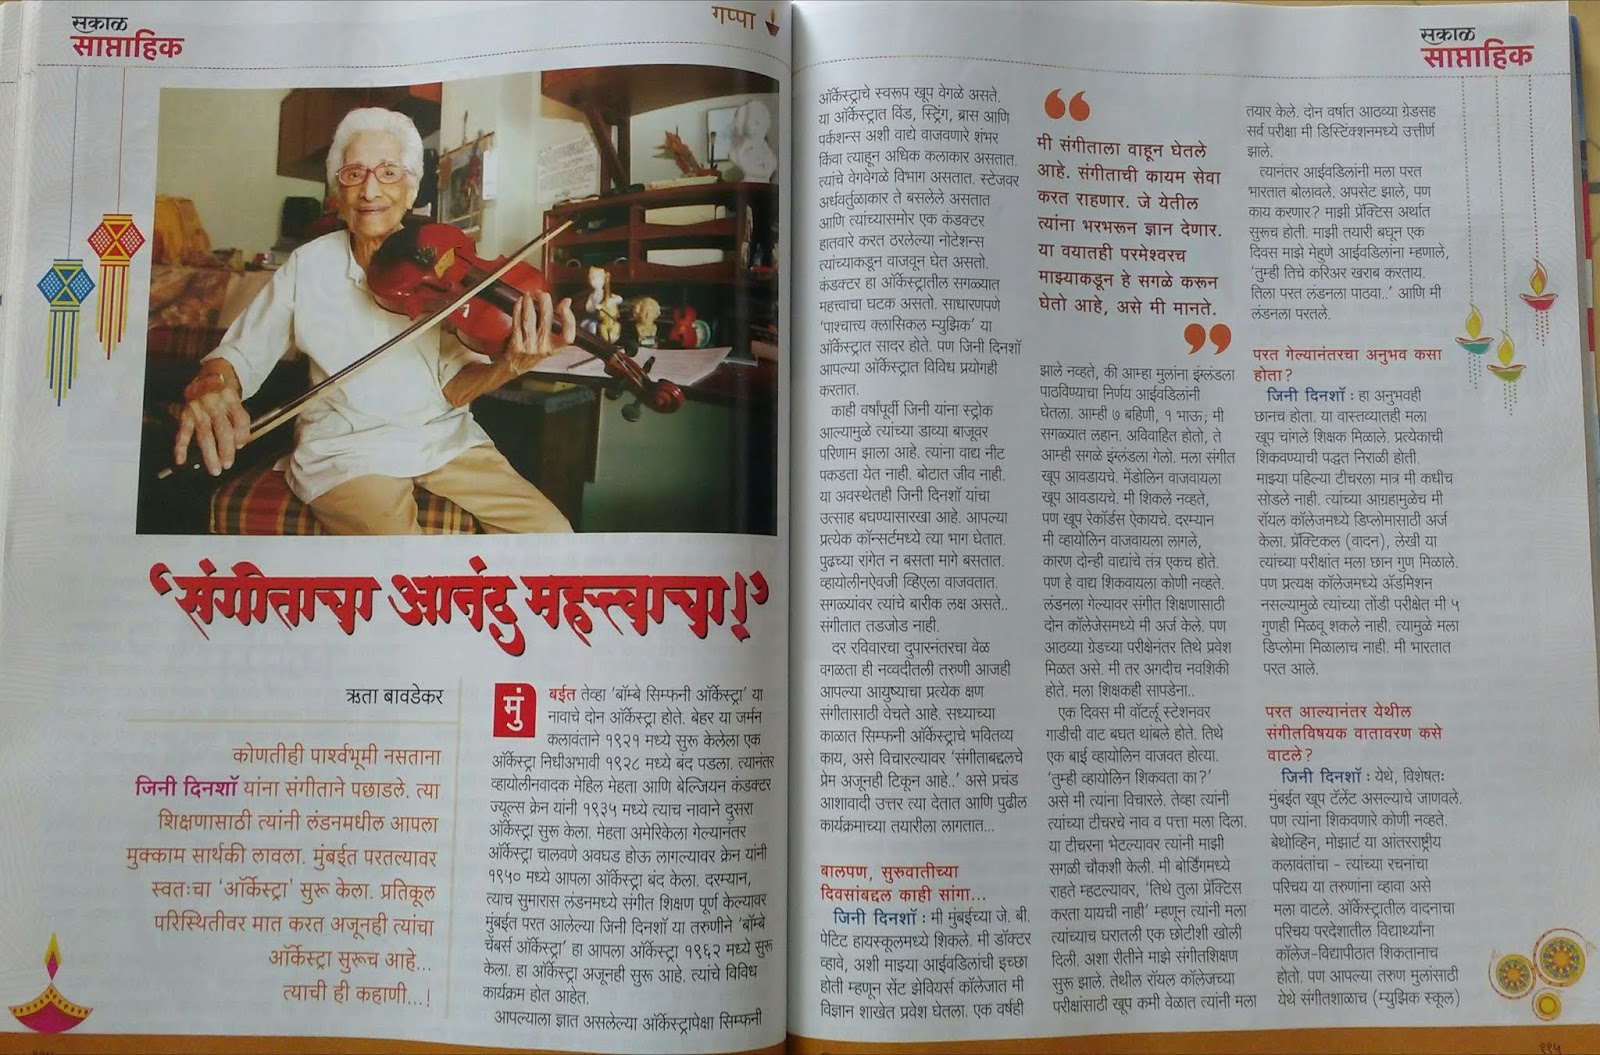 सकाळ
साप्ताहिक
गप्पा
‘संगीताचा आनंद महत्त्वाचा!’
ऋता बावडेकर
कोणतीही पार्श्वभूमी नसताना
जिनी दिनशॉ यांना संगीताने पछाडले. त्या
शिक्षणासाठी त्यांनी लंडनमधील आपला
मुक्काम सार्थकी लावला. मुंबईत परतल्यावर
स्वतःचा ‘ऑर्केस्ट्रा’ सुरू केला. प्रतिकूल
परिस्थितीवर मात करत अजूनही त्यांचा
ऑर्केस्ट्रा सुरूच आहे...
त्याची ही कहाणी...!
मुंबईत तेव्हा ‘बॉम्बे सिम्फनी ऑर्केस्ट्रा’ या
नावाचे दोन ऑर्केस्ट्रा होते. बेहर या जर्मन
कलावंताने १९२१ मध्ये सुरू केलेला एक
ऑर्केस्ट्रा निधीअभावी १९२८ मध्ये बंद पडला. त्यानंतर
व्हायोलीनवादक मेहिल मेहता आणि बेल्जियन कंडक्टर
ज्यूल्स क्रेन यांनी १९३५ मध्ये त्याच नावाने दुसरा
ऑर्केस्ट्रा सुरू केला. मेहता अमेरिकेला गेल्यानंतर
ऑर्केस्ट्रा चालवणे अवघड होऊ लागल्यावर क्रेन यांनी
१९५० मध्ये आपला ऑर्केस्ट्रा बंद केला. दरम्यान,
त्याच सुमारास लंडनमध्ये संगीत शिक्षण पूर्ण केल्यावर
मुंबईत परत आलेल्या जिनी दिनशॉ या तरुणीने ‘बॉम्बे
चेंबर्स ऑर्केस्ट्रा’ हा आपला ऑर्केस्ट्रा १९६२ मध्ये सुरू
केला. हा ऑर्केस्ट्रा अजूनही सुरू आहे. त्यांचे विविध
कार्यक्रम होत आहेत.
आपल्याला ज्ञात असलेल्या ऑर्केस्ट्रापेक्षा सिम्फनी
सकाळ
साप्ताहिक
ऑर्केस्ट्राचे स्वरूप खूप वेगळे असते.
या ऑर्केस्ट्रात विंड, स्ट्रिंग, ब्रास आणि
पर्कशन्स अशी वाद्ये वाजवणारे शंभर
किंवा त्याहून अधिक कलाकार असतात.
त्यांचे वेगवेगळे विभाग असतात. स्टेजवर
अर्धवर्तुळाकार ते बसलेले असतात
आणि त्यांच्यासमोर एक कंडक्टर
हातवारे करत ठरलेल्या नोटेशन्स
त्यांच्याकडून वाजवून घेत असतो.
कंडक्टर हा ऑर्केस्ट्रातील सगळ्यात
महत्त्वाचा घटक असतो. साधारणपणे
‘पाश्चात्त्य क्लासिकल म्युझिक’ या
ऑर्केस्ट्रात सादर होते. पण जिनी दिनशॉ
आपल्या ऑर्केस्ट्रात विविध प्रयोगही
करतात.
काही वर्षांपूर्वी जिनी यांना स्ट्रोक
आल्यामुळे त्यांच्या डाव्या बाजूवर
परिणाम झाला आहे. त्यांना वाद्य नीट
पकडता येत नाही. बोटात जीव नाही.
या अवस्थेतही जिनी दिनशॉ यांचा
उत्साह बघण्यासारखा आहे. आपल्या
प्रत्येक कॉन्सर्टमध्ये त्या भाग घेतात.
पुढच्या रांगेत न बसता मागे बसतात.
व्हायोलीनऐवजी व्हिएला वाजवतात.
सगळ्यांवर त्यांचे बारीक लक्ष असते..
संगीतात तडजोड नाही.
दर रविवारचा दुपारनंतरचा वेळ
वगळता ही नव्वदीतली तरुणी आजही
आपल्या आयुष्याचा प्रत्येक क्षण
संगीतासाठी वेचते आहे. सध्याच्या
काळात सिम्फनी ऑर्केस्ट्राचे भवितव्य
काय, असे विचारल्यावर ‘संगीताबद्दलचे
प्रेम अजूनही टिकून आहे..’ असे प्रचंड
आशावादी उत्तर त्या देतात आणि पुढील
कार्यक्रमाच्या तयारीला लागतात...
बालपण, सुरुवातीच्या
दिवसांबद्दल काही सांगा...
जिनी दिनशॉ : मी मुंबईच्या जे. बी.
पेटिट हायस्कूलमध्ये शिकले. मी डॉक्टर
व्हावे, अशी माझ्या आईवडिलांची इच्छा
होती म्हणून सेंट झेवियर्स कॉलेजात मी
विज्ञान शाखेत प्रवेश घेतला. एक वर्षही
“
मी संगीताला वाहून घेतले
आहे. संगीताची कायम सेवा
करत राहणार. जे येतील
त्यांना भरभरून ज्ञान देणार.
या वयातही परमेश्वरच
माझ्याकडून हे सगळे करून
घेतो आहे, असे मी मानते.
”
झाले नव्हते, की आम्हा मुलांना इंग्लंडला
पाठविण्याचा निर्णय आईवडिलांनी
घेतला. आम्ही ७ बहिणी, १ भाऊ; मी
सगळ्यात लहान. अविवाहित होतो, ते
आम्ही सगळे इंग्लंडला गेलो. मला संगीत
खूप आवडायचे. मेंडोलिन वाजवायला
खूप आवडायचे. मी शिकले नव्हते,
पण खूप रेकॉर्डस ऐकायचे. दरम्यान
मी व्हायोलिन वाजवायला लागले,
कारण दोन्ही वाद्यांचे तंत्र एकच होते.
पण हे वाद्य शिकवायला कोणी नव्हते.
लंडनला गेल्यावर संगीत शिक्षणासाठी
दोन कॉलेजेसमध्ये मी अर्ज केले. पण
आठव्या ग्रेडच्या परीक्षेनंतर तिथे प्रवेश
मिळत असे. मी तर अगदीच नवशिकी
होते. मला शिक्षकही सापडेना..
एक दिवस मी वॉटर्लू स्टेशनवर
गाडीची वाट बघत थांबले होते. तिथे
एक बाई व्हायोलिन वाजवत होत्या.
‘तुम्ही व्हायोलिन शिकवता का?’
असे मी त्यांना विचारले. तेव्हा त्यांनी
त्यांच्या टीचरचे नाव व पत्ता मला दिला.
या टीचरना भेटल्यावर त्यांनी माझी
सगळी चौकशी केली. मी बोर्डिंगमध्ये
राहते म्हटल्यावर, ‘तिथे तुला प्रॅक्टिस
करता यायची नाही’ म्हणून त्यांनी मला
त्यांच्याच घरातली एक छोटीशी खोली
दिली. अशा रीतीने माझे संगीतशिक्षण
सुरू झाले. तेथील रॉयल कॉलेजच्या
परीक्षांसाठी खूप कमी वेळात त्यांनी मला
तयार केले. दोन वर्षात आठव्या ग्रेडसह
सर्व परीक्षा मी डिस्टिंक्शनमध्ये उत्तीर्ण
झाले.
त्यानंतर आईवडिलांनी मला परत
भारतात बोलावले. अपसेट झाले, पण
काय करणार? माझी प्रॅक्टिस अर्थात
सुरूच होती. माझी तयारी बघून एक
दिवस माझे मेहुणे आईवडिलांना म्हणाले,
‘तुम्ही तिचे करिअर खराब करताय.
तिला परत लंडनला पाठवा..’ आणि मी
लंडनला परतले.
परत गेल्यानंतरचा अनुभव कसा
होता?
जिनी दिनशॉ : हा अनुभवही
छानच होता. या वास्तव्यातही मला
खूप चांगले शिक्षक मिळाले. प्रत्येकाची
शिकवण्याची पद्धत निराळी होती.
माझ्या पहिल्या टीचरला मात्र मी कधीच
सोडले नाही. त्यांच्या आग्रहामुळेच मी
रॉयल कॉलेजमध्ये डिप्लोमासाठी अर्ज
केला. प्रॅक्टिकल (वादन), लेखी या
त्यांच्या परीक्षांत मला छान गुण मिळाले.
पण प्रत्यक्ष कॉलेजमध्ये ॲडमिशन
नसल्यामुळे त्यांच्या तोंडी परीक्षेत मी ५
गुणही मिळवू शकले नाही. त्यामुळे मला
डिप्लोमा मिळालाच नाही. मी भारतात
परत आले.
परत आल्यानंतर येथील
संगीतविषयक वातावरण कसे
वाटले?
जिनी दिनशॉ : येथे, विशेषतः
मुंबईत खूप टॅलेंट असल्याचे जाणवले.
पण त्यांना शिकवणारे कोणी नव्हते.
बेथोव्हिन, मोझार्ट या आंतरराष्ट्रीय
कलावंतांचा - त्यांच्या रचनांचा
परिचय या तरुणांना व्हावा असे
मला वाटले. ऑर्केस्ट्रातील वादनाचा
परिचय परदेशातील विद्यार्थ्यांना
कॉलेज-विद्यापीठात शिकतानाच
होतो. पण आपल्या तरुण मुलांसाठी
येथे संगीतशाळाच (म्युझिक स्कूल)
११५